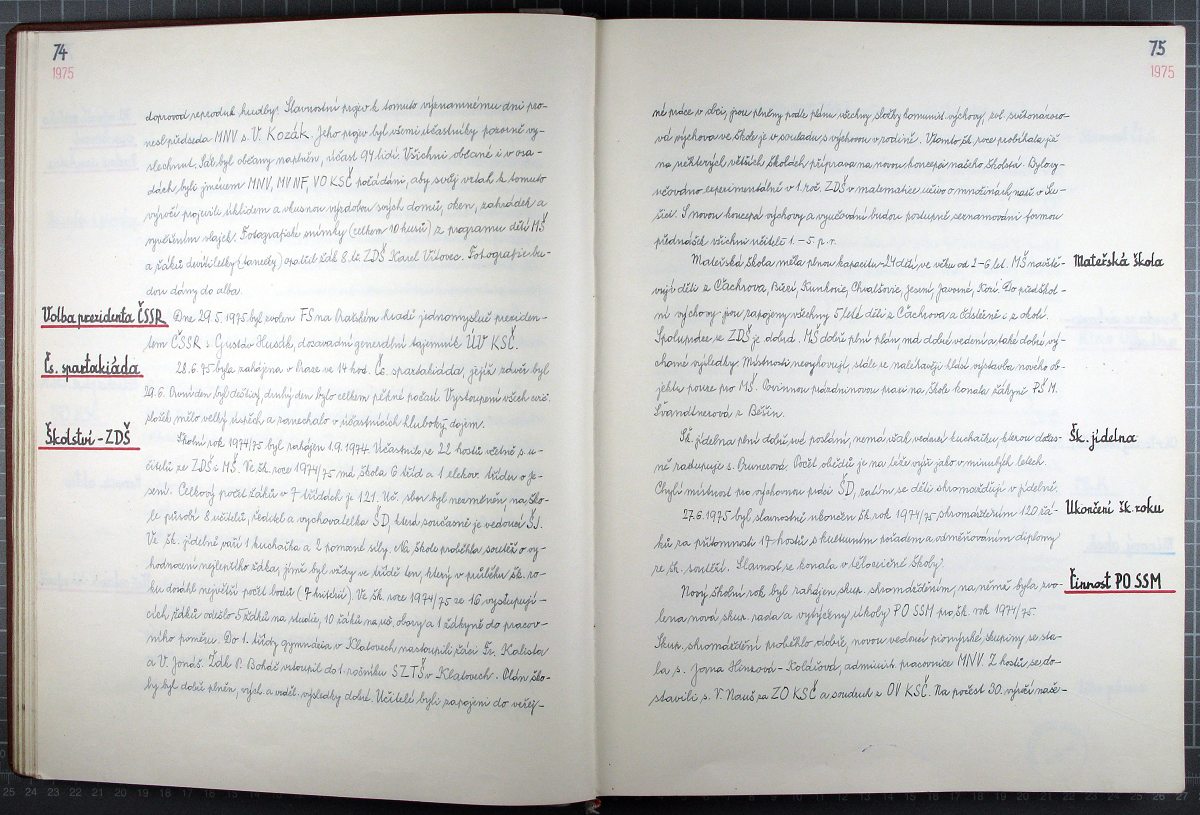 74
1975
doprovod reproduk. hudby. Slavnostní projev k tomuto významnému dni pro-
nesl předseda MNV s. V. Kozák. Jeho projev byl všemi účastníky pozorně vy-
slechnut. Sál byl občany naplněn, účast 94 lidí. Všichni občané i v osa-
dách byli jménem MNV, MV NF, VO KSČ požádáni, aby svůj vztah k tomuto
výročí projevili úklidem a vkusnou výzdobou svých domů, oken, zahrádek a
vyvěšením vlajek. Fotografické snímky (celkem 10 kusů) z programu dětí MŠ
a žáků devítiletky (tanečky) opatřil žák 8. tř. ZDŠ Karel Vítovec. Fotografie bu-
dou dány do alba.
Volba prezidenta ČSSR
Dne 29.5.1975 byl zvolen FS na Pražském hradě jednomyslně preziden-
tem ČSSR s. Gustáv Husák, dosavadní generální tajemník ÚV KSČ.
Čs. spartakiáda
28.6.75 byla zahájena v Praze ve 14 hod. Čs. spartakiáda, jejíž závěr byl
29.6. První den byl deštivý, druhý den bylo celkem pěkné počasí. Vystoupení všech cvič.
složek mělo velký úspěch a zanechalo v účastnících hluboký dojem.
Školství - ZDŠ
Školní rok 1974/75 byl zahájen 1.9.1974. Účastnilo se 22 hostů včetně s. u-
čitelů ze ZDŠ i MŠ. Ve šk. roce 1974/75 má škola 6 tříd a 1 elokov. třídu v Je-
sení. Celkový počet žáků v 7 třídách je 121. Uč. sbor byl nezměněn, na ško-
le působí 8 učitelů, ředitel a vychovatelka ŠD, která současně je vedoucí ŠJ.
Ve šk. jídelně vaří 1 kuchařka a 2 pomocné síly. Na škole proběhla soutěž o vy-
hodnocení nejlepšího žáka, jímž byl vždy ve třídě ten, který v průběhu šk. ro-
ku dosáhl největší počet bodů (7 kritérií). Ve šk. roce 1974/75 ze 16 vystupují-
cích žáků odešlo 5 žáků na studia, 10 žáků na uč. obory a 1 žákyně do pracov-
ního poměru. Do 1. třídy gymnázia v Klatovech nastoupili žáci Fr. Kalista
a V. Jonáš. Žák P. Boháč vstoupil do 1. ročníku SZTŠ v Klatovech. Plán ško-
ly byl dobře plněn, vých. a vzděl. výsledky dobré. Učitelé byli zapojeni do veřej-
75
1975
né práce v obci, jsou plněny podle plánu všechny složky komunist. výchovy, zvl. světonázoro-
vá výchova ve škole je v souladu s výchovou v rodině. V tomto šk. roce probíhala již
na některých větších školách příprava na novou koncepci našeho školství. Bylo vy-
učováno experimentálně v 1. roč. ZDŠ v matematice učivo o množinách, např. v Su-
šici. S novou koncepcí výchovy a vyučování budou postupně seznamováni formou
přednášek všichni učitelé 1. - 5. p. r.
Mateřská škola
Mateřská škola měla plnou kapacitu - 24 dětí ve věku od 2-6 let. MŠ navště-
vují děti z Čachrova, Březí, Kunkovic, Chvalšovic, Jesení, Javorné, Zhůří. Do předškol-
ní výchovy jsou zapojeny všechny 5 leté děti z Čachrova a částečně i z okolí.
Spolupráce se ZDŠ je dobrá. MŠ dobře plní plán, má dobré vedení a také dobré vý-
chovné výsledky. Místnosti nevyhovují, stále se naléhavěji hlásí výstavba nového ob-
jektu pouze pro MŠ. Povinnou prázdninovou praxi na škole konala žákyně PŠ M.
Švandtnerová z Běšin.
Šk. jídelna
Šk. jídelna plní dobře své poslání, nemá však vedoucí kuchařku, kterou dočas-
ně zastupuje s. Prunerová. Počet obědů je na téže výši jako v minulých letech.
Chybí místnost pro výchovnou práci ŠD, zatím se děti shromažďují v jídelně.
Ukončení šk. roku
27.6.1975 byl slavnostně ukončen šk. rok 1974/75 shromážděním 120 žá-
ků za přítomnosti 17 hostů s kulturním pořadem a odměňováním diplomy
ze šk. soutěží. Slavnost se konala v tělocvičně školy.
Činnost PO SSM
Nový školní rok byl zahájen skup. shromážděním, na němž byla zvo-
lena nová skup. rada a vytýčeny úkoly PO SSM pro šk. rok 1974/75.
Skup. shromáždění proběhlo dobře, novou vedoucí pionýrské skupiny se sta-
la s. Jana Hinzová - Kolářová, administ. pracovnice MNV. Z hostů se do-
stavili s. V. Nauš za ZO KSČ a soudruh z OV KSČ. Na počest 30. výročí naše-